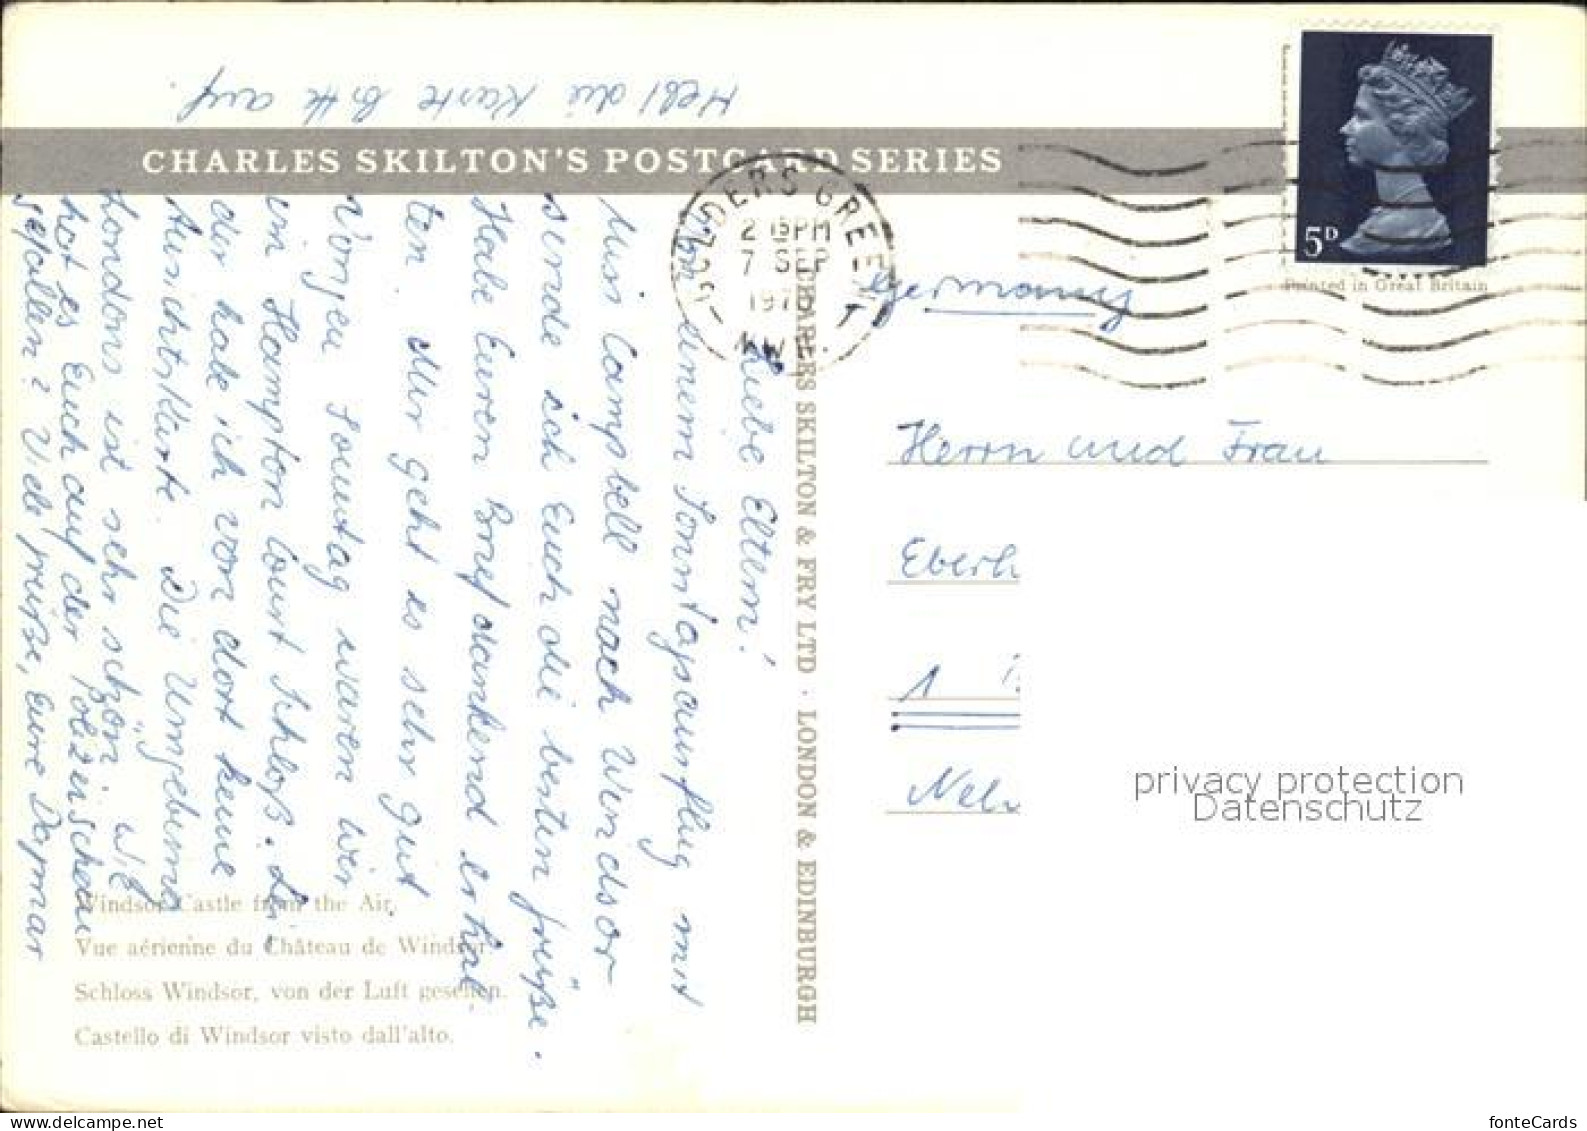 Hebt die Karte bitte auf.
CHARLES SKILTON'S POSTCARD SERIES
Liebe Eltern!
Von einem Sonntagsausflug mit
Miss Campbell nach Windsor
sende ich Euch die besten Grüße.
Habe Euren Brief dankend erhal-
ten. Mir geht es sehr gut.
Vorigen Sonntag waren wir
im Hampton Court Schloß. Lei-
der habe ich von dort keine
Ansichtskarte. Die Umgebung
Londons ist sehr schön. Wie
hat es Euch auf der
gefallen? Viele Grüße, Eure Dagmar
Windsor Castle from the Air.
Vue aérienne du Château de Windsor.
Schloss Windsor, von der Luft gesehen.
Castello di Windsor visto dall'alto.
CHARLES SKILTON & FRY LTD · LONDON & EDINBURGH
GOLDERS GREEN
2 15PM
7 SEP
197
N.W.
5D
Printed in Great Britain
Germany
Herrn und Frau
Eberh
1
Neh
privacy protection
Datenschutz
fonteCards